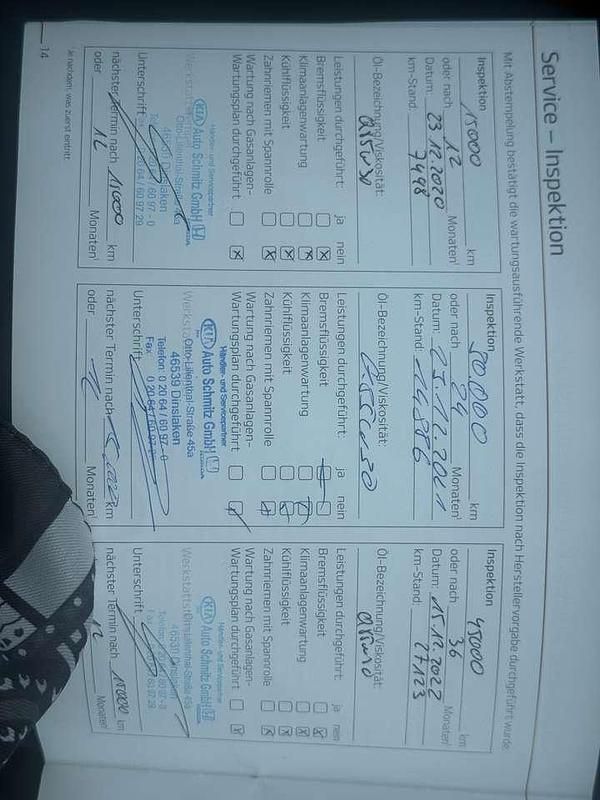 Service – Inspektion
Mit Abstempelung bestätigt die wartungsausführende Werkstatt, dass die Inspektion nach Herstellervorgabe durchgeführt wurde.
Inspektion 15000 km
oder nach 12 Monaten¹
Datum: 23.12.2020
km-Stand: 7498
Öl-Bezeichnung/Viskosität:
Leistungen durchgeführt: ja nein
Bremsflüssigkeit
Klimaanlagenwartung
Kühlflüssigkeit
Zahnriemen mit Spannrolle
Wartung nach Gasanlagen-
Wartungsplan durchgeführt
Händler- und Servicepartner
KIA Auto Schmitz GmbH
Otto-Lilienthal-Straße
46539 Dinslaken
Unterschrift
nächster Termin nach 15000 km
oder 12 Monaten¹
Inspektion 30.000 km
oder nach 24 Monaten¹
Datum: 23.12.2021
km-Stand: 14886
Öl-Bezeichnung/Viskosität:
Leistungen durchgeführt: ja nein
Bremsflüssigkeit
Klimaanlagenwartung
Kühlflüssigkeit
Zahnriemen mit Spannrolle
Wartung nach Gasanlagen-
Wartungsplan durchgeführt
Händler- und Servicepartner
KIA Auto Schmitz GmbH
Otto-Lilienthal-Straße 45a
46539 Dinslaken
Telefon: 0 20 64 / 60 97 - 0
Fax
Unterschrift
nächster Termin nach km
oder Monaten¹
Inspektion 45000 km
oder nach 36 Monaten¹
Datum: 15.12.2022
km-Stand: 27123
Öl-Bezeichnung/Viskosität:
Leistungen durchgeführt: ja nein
Bremsflüssigkeit
Klimaanlagenwartung
Kühlflüssigkeit
Zahnriemen mit Spannrolle
Wartung nach Gasanlagen-
Wartungsplan durchgeführt
Händler- und Servicepartner
KIA Auto Schmitz GmbH
46539 Dinslaken
Unterschrift
nächster Termin nach 15000 km
12 Monaten¹
¹ Je nachdem, was zuerst eintritt.
14